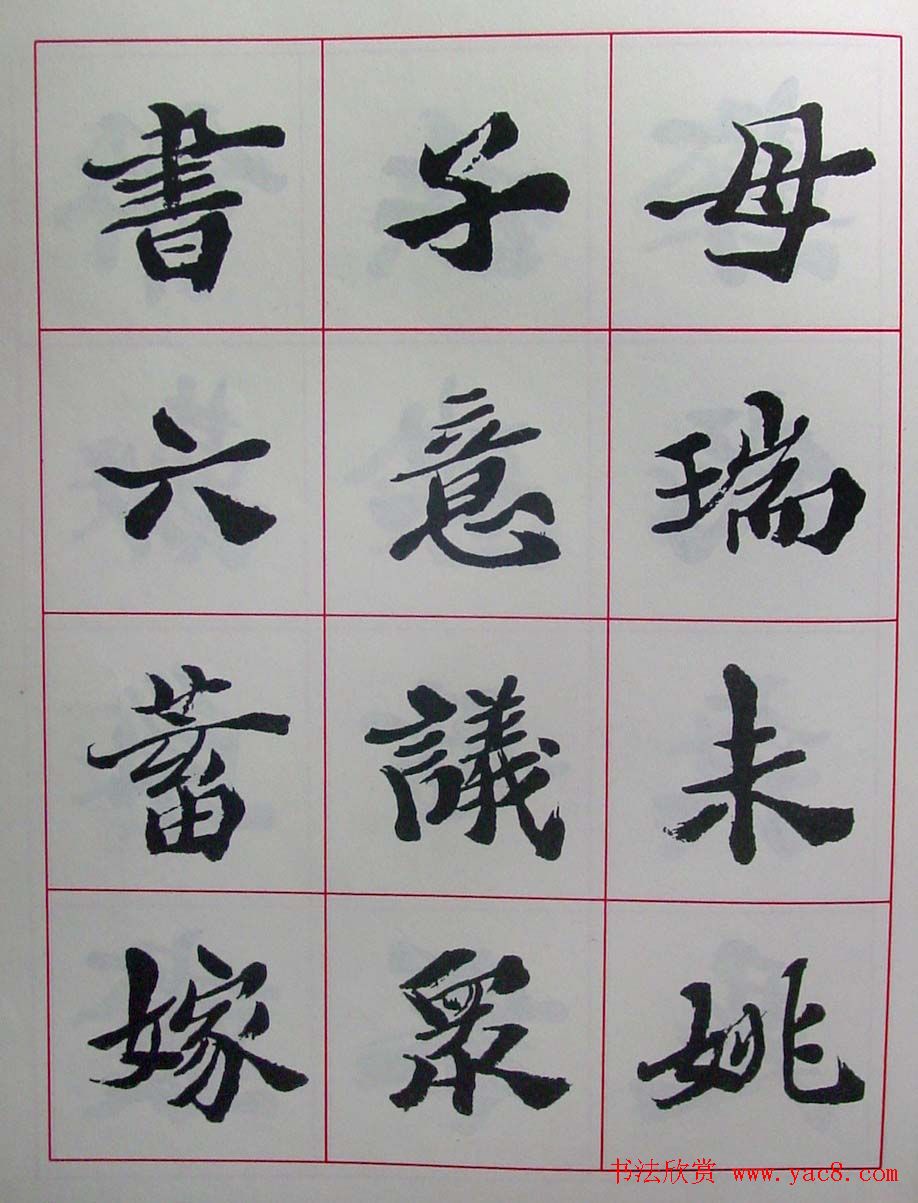 母瑞未姚
子意議眾
書六蓄嫁
书法欣赏 www.yac8.com